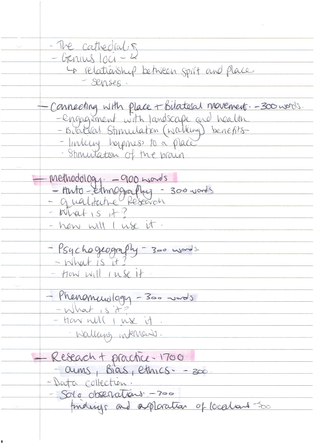 - The cathedral
- Genius loci -
↳ relationship between spirit and place.
- senses.
- Connecting with place + Bilateral movement. - 300 words.
- engagement with landscape and health.
- Bilateral Stimulation (walking) benefits -
- linking happiness to a place
- Stimulation of the brain
- Methodology. - 900 words
- Auto-ethnography - 300 words
- qualitative Research
- What is it?
- how will I use it.
- Psychogeography - 300 words
- What is it?
- How will I use it
- Phenomenology - 300 words
- What is it?
- How will I use it.
- walking interviews.
- Research + practice - 1700
- aims, Bias, ethics. - 300.
- Data collection.
- Solo observations - 700
findings and exploration of locations - 500